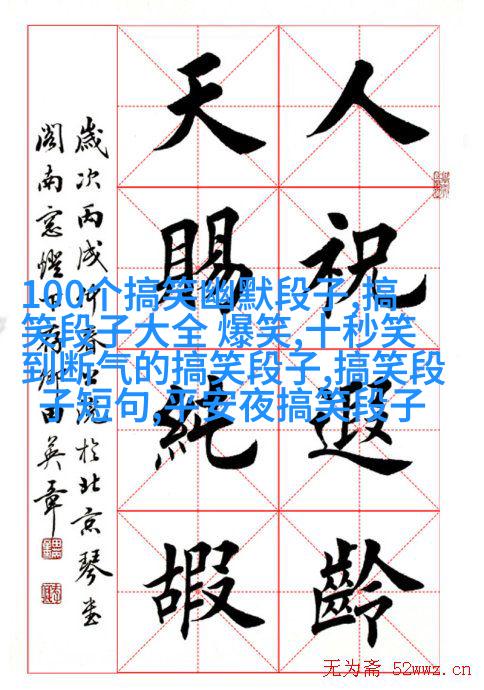 人祝遐齡
天賜純嘏
歲次丙戌仲春於北京琴
閣南窓燈下田英章
100个搞笑幽默段子,搞
笑段子大全 爆笑,十秒笑
到断气的搞笑段子,搞笑段
子短句,平安夜搞笑段子
无为斋 52wwz.cn